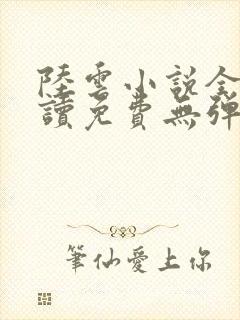 陸雲小說全
讀免費無彈
筆仙愛上你